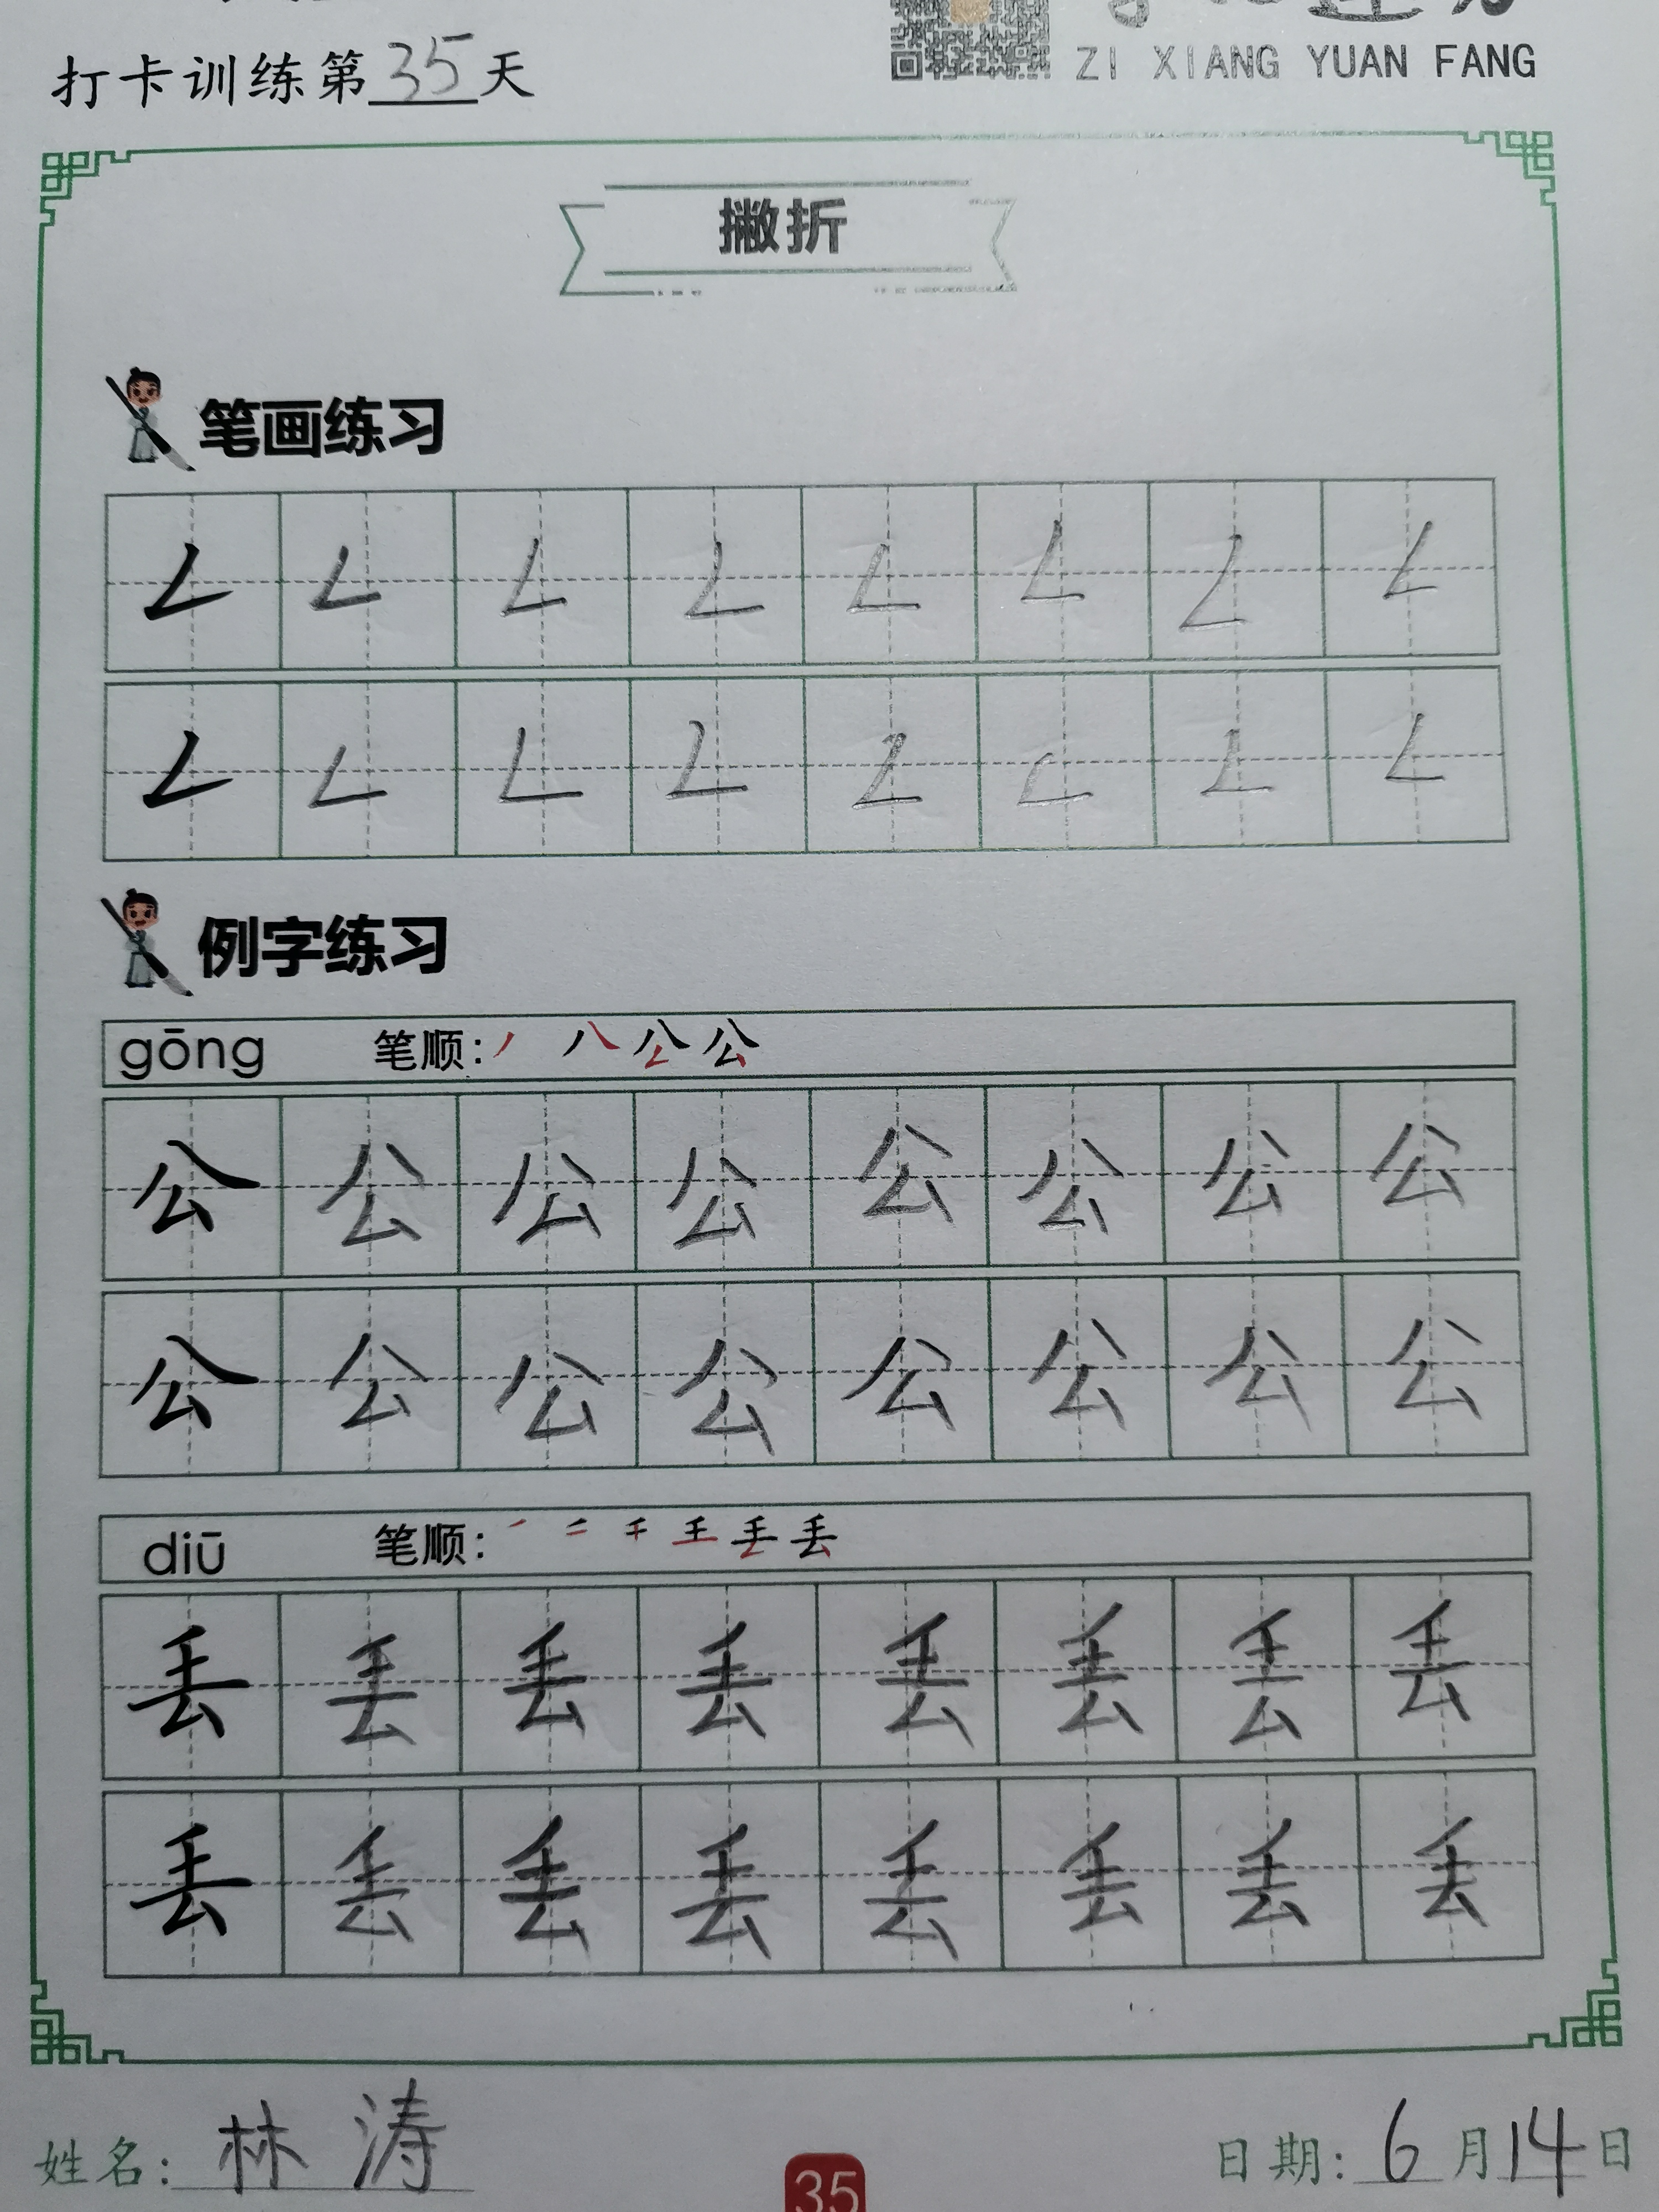 打卡训练第35天
ZI XIANG YUAN FANG
撇折
笔画练习
𠃋 𠃋 𠃋 𠃋 𠃋 𠃋 𠃋 𠃋
𠃋 𠃋 𠃋 𠃋 𠃋 𠃋 𠃋 𠃋
例字练习
gōng 笔顺: 丿 八 公 公
公 公 公 公 公 公 公 公
公 公 公 公 公 公 公 公
diū 笔顺: 丢
丢 丢 丢 丢 丢 丢 丢 丢
丢 丢 丢 丢 丢 丢 丢 丢
姓名: 林涛 日期: 6月14日
35